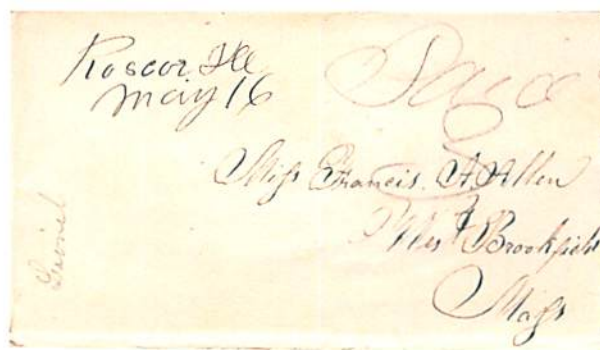 Roscoe Ill
May 16
Paid
Miss Francis. A. Allen
West Brookfield
Mass